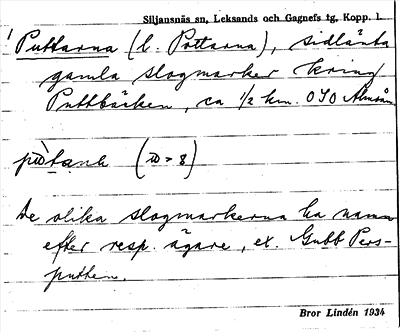 Siljansnäs sn, Leksands och Gagnefs tg, Kopp. l.
Puttarna (l. Pottarna), sidlänta
gamla slogmarker kring
Puttbäcken, ca ½ km. OSO Almsån.
(ω = 8)
De olika slogmarkerna ha namn
efter resp. ägare, ex. Gubb Pers-
putten.
Bror Lindén 1934